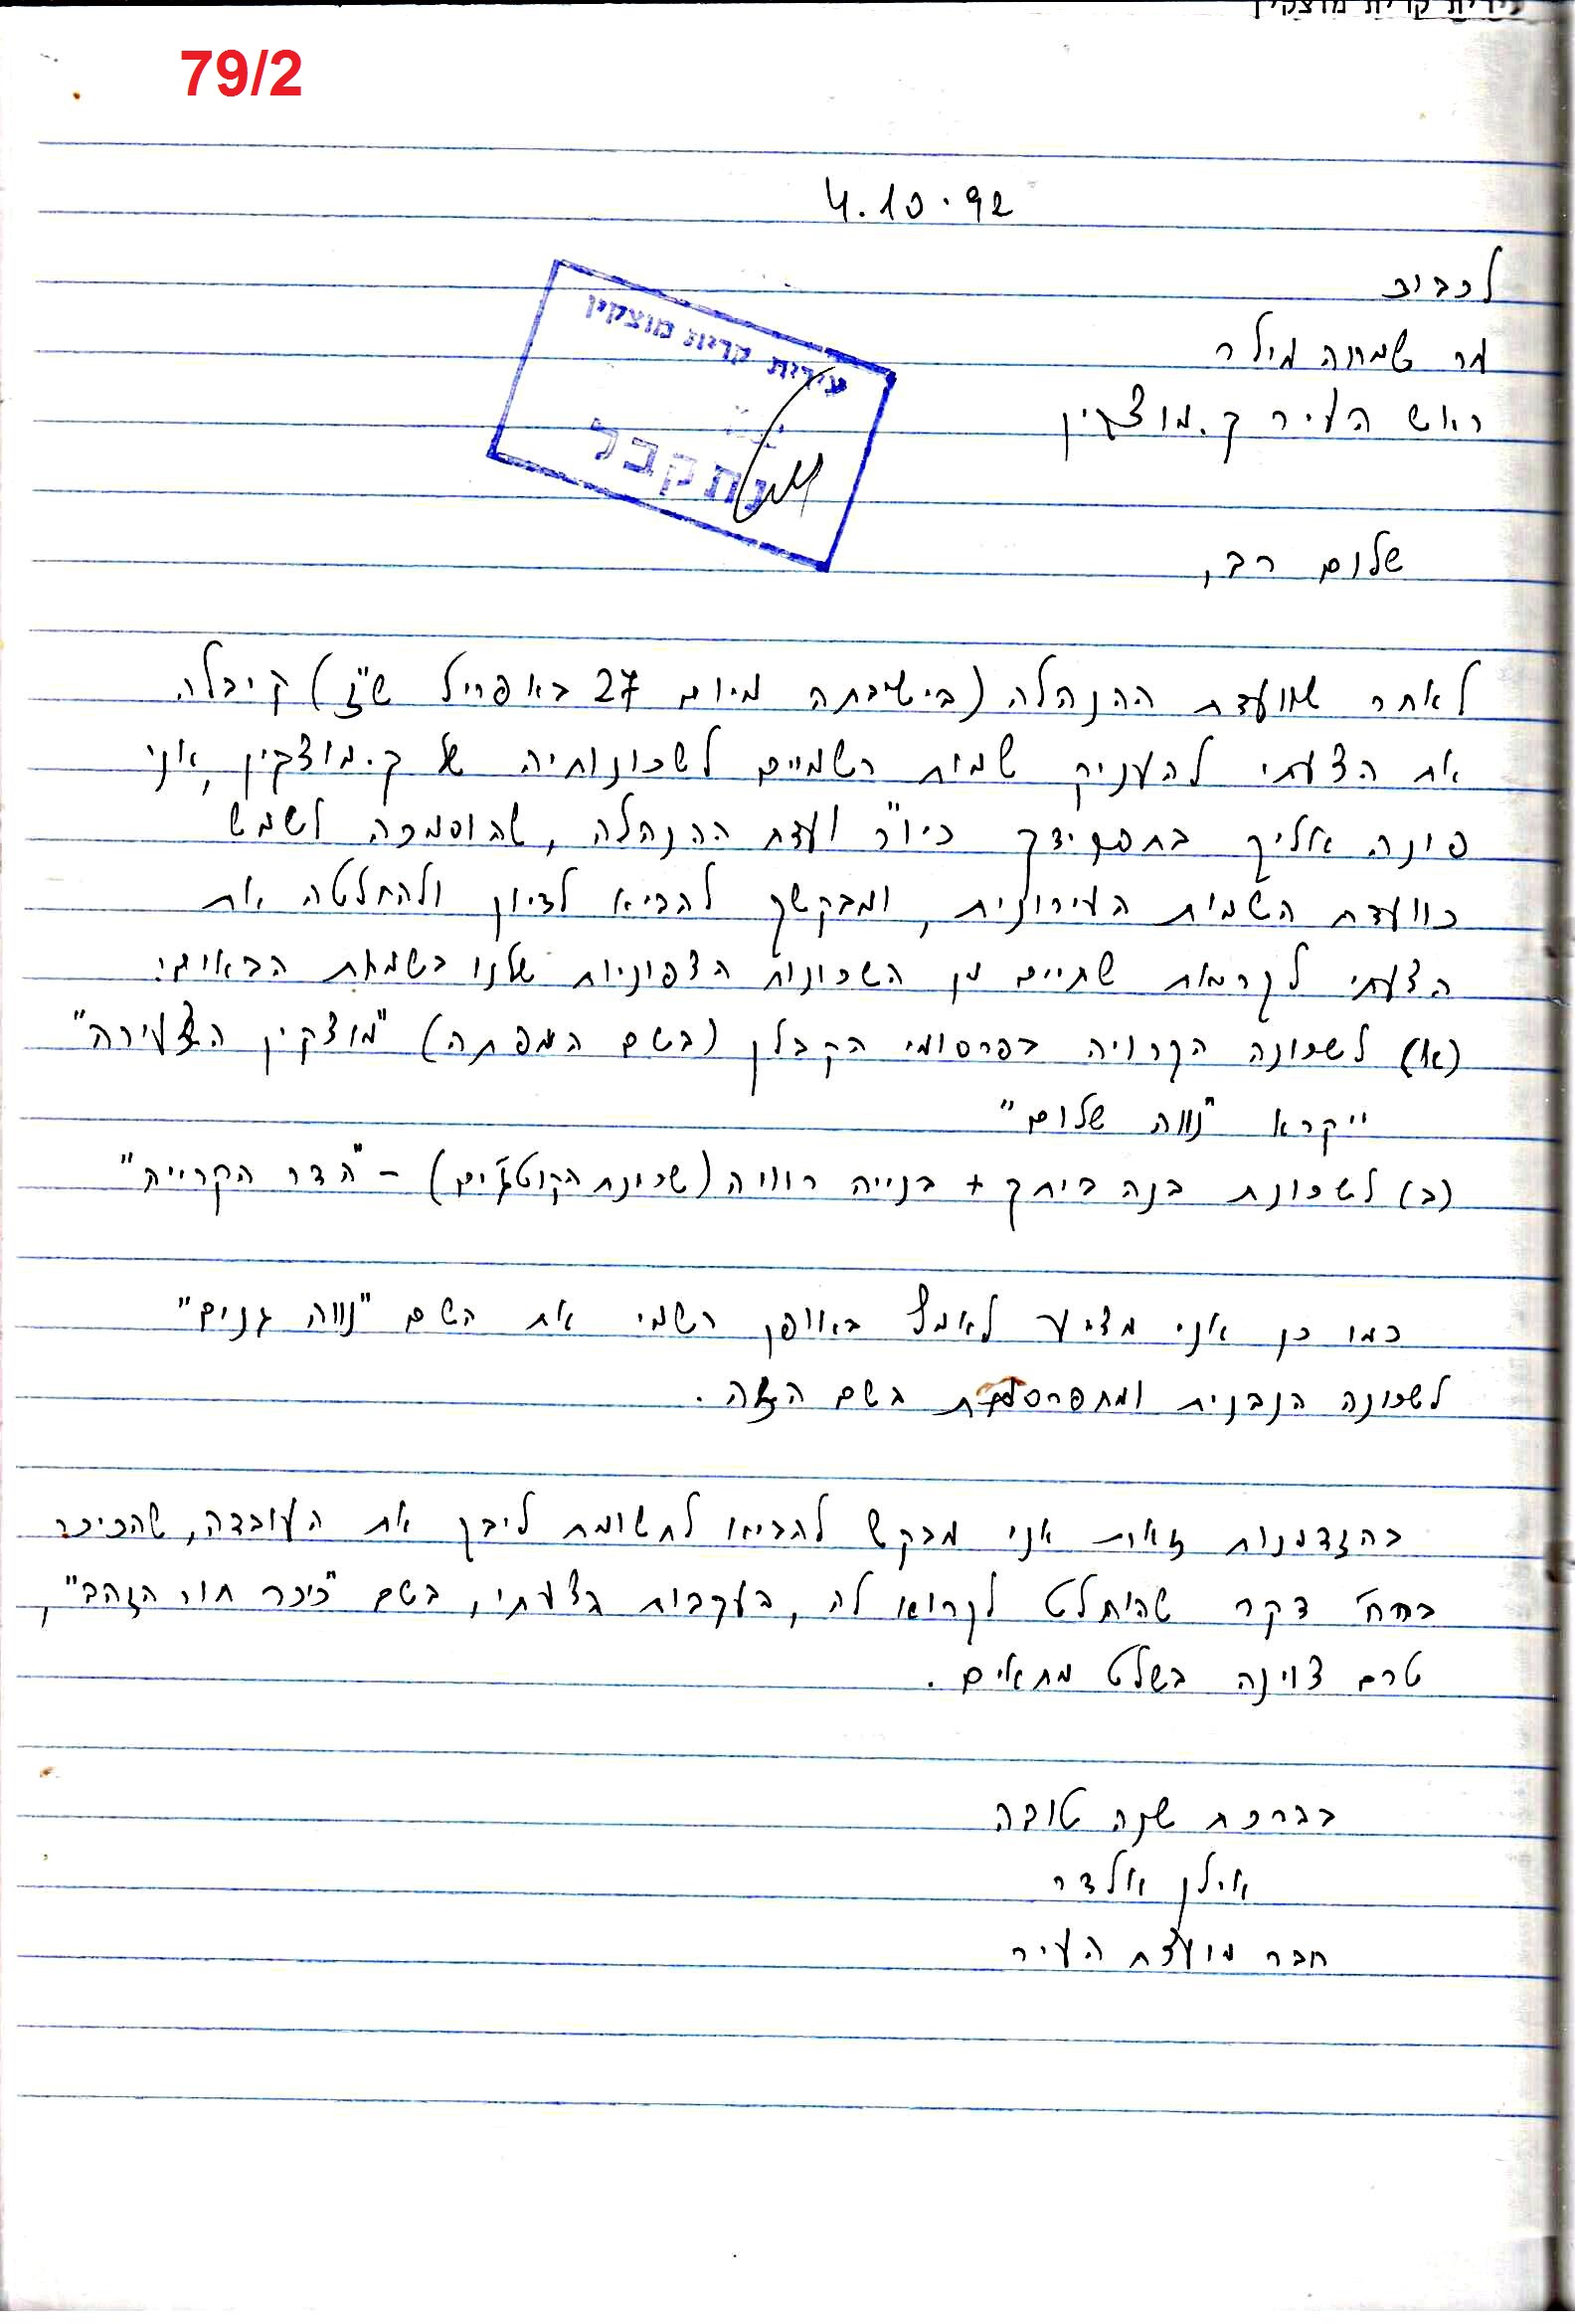 עירית קרית מוצקין
79/2
4.10.92
לכבוד
מר שמחה מילר
ראש העיר ק.מוצקין
עירית קרית מוצקין
נתקבל
שלום רב,
לאחר שוועדת ההנהלה (בישיבתה מיום 27 באפריל ש"ז) קיבלה
את הצעתי להעניק שמות רשמיים לשכונותיה של ק.מוצקין, אני
פונה אליך בתפקידך כיו"ר ועדת ההנהלה, שהוסמכה לשמש
כוועדת השמות העירונית, ומבקשך להביא לדיון ולהחלטה את
הצעתי לקריאת שתיים מן השכונות הצפוניות שלנו בשמות הבאים:
(א) לשכונה הקרויה בפרסומי הקבלן (בשם המפתה) "מוצקין הצעירה"
ייקרא "נווה שלום"
(ב) לשכונת בנה ביתך + בנייה רוויה (שכונת הקוטג'ים) - "הדר הקרייה"
כמו כן אני מציע לאמץ באופן רשמי את השם "נווה גנים"
לשכונה הנבנית ומתפרסמת בשם הזה.
בהזדמנות זאת אני מבקש להביא לתשומת ליבך את העובדה, שהכיכר
ברח' דקר שהוחלט לקרוא לה, בעקבות הצעתי, בשם "כיכר תור הזהב",
טרם צוינה בשלט מתאים.
בברכת שנה טובה
אילן אלדר
חבר מועצת העיר